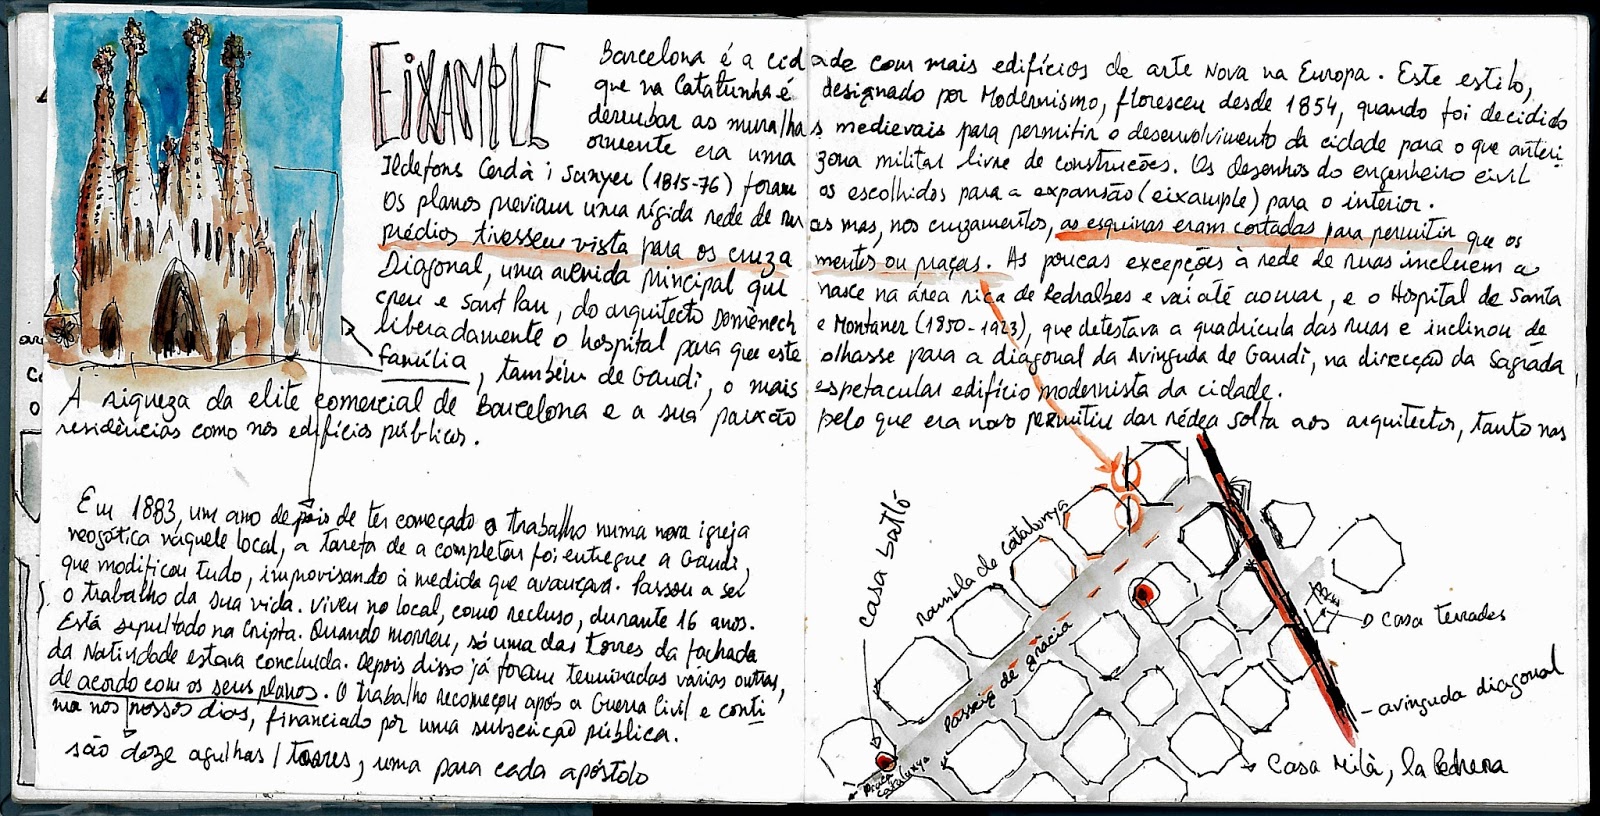 EiXAMPLE
Barcelona é a cidade com mais edifícios de arte Nova na Europa. Este estilo,
que na Catalunha é designado por Modernismo, floresceu desde 1854, quando foi decidido
derrubar as muralhas medievais para permitir o desenvolvimento da cidade para o que anteri
ormente era uma zona militar livre de construções. Os desenhos do engenheiro civil
Ildefons Cerdà i Sunyer (1815-76) foram os escolhidos para a expansão (eixample) para o interior.
Os planos previam uma rígida rede de ruas mas, nos cruzamentos, as esquinas eram cortadas para permitir que os
prédios tivessem vista para os cruzamentos ou praças. As poucas excepções à rede de ruas incluem a
Diagonal, uma avenida principal que nasce na área rica de Pedralbes e vai até ao mar, e o Hospital de Santa
Creu e Sant Pau, do arquitecto Domènech e Montaner (1850-1923), que detestava a quadrícula das ruas e inclinou de
liberadamente o hospital para que este olhasse para a diagonal da Avinguda de Gaudi, na direcção da Sagrada
família, também de Gaudi, o mais espetacular edifício modernista da cidade.
A riqueza da elite comercial de Barcelona e a sua paixão pelo que era novo permitiu dar rédea solta aos arquitectos, tanto nas
residências como nos edifícios públicos.
Em 1883, um ano depois de ter começado o trabalho numa nova igreja
neogótica naquele local, a tarefa de a completar foi entregue a Gaudi,
que modificou tudo, improvisando à medida que avançava. Passou a ser
o trabalho da sua vida. Viveu no local, como recluso, durante 16 anos.
Está sepultado na Cripta. Quando morreu, só uma das torres da fachada
da Natividade estava concluída. Depois disso já foram terminadas várias outras,
de acordo com os seus planos. O trabalho recomeçou após a Guerra Civil e conti
nua nos nossos dias, financiado por uma subscrição pública.
são doze agulhas / torres, uma para cada apóstolo
casa batló
rambla de catalunya
Passeig de gràcia
Praça catalunya
casa terrades
avinguda diagonal
Casa Milà, la Pedrera